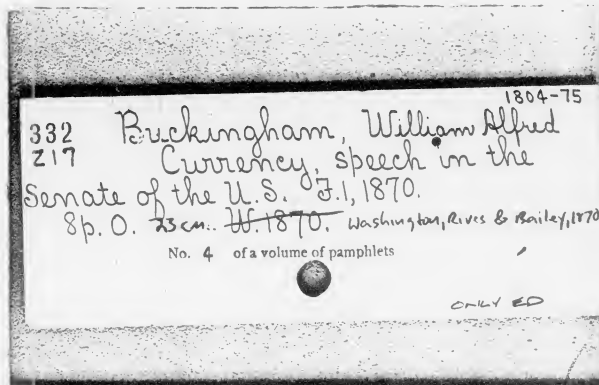 1804-75
332 Buckingham, William Alfred
Z17 Currency, speech in the
Senate of the U.S. F.1, 1870.
8p. O. 23 cm. W.1870. Washington, Rives & Bailey, 1870
No. 4 of a volume of pamphlets
ONLY ED